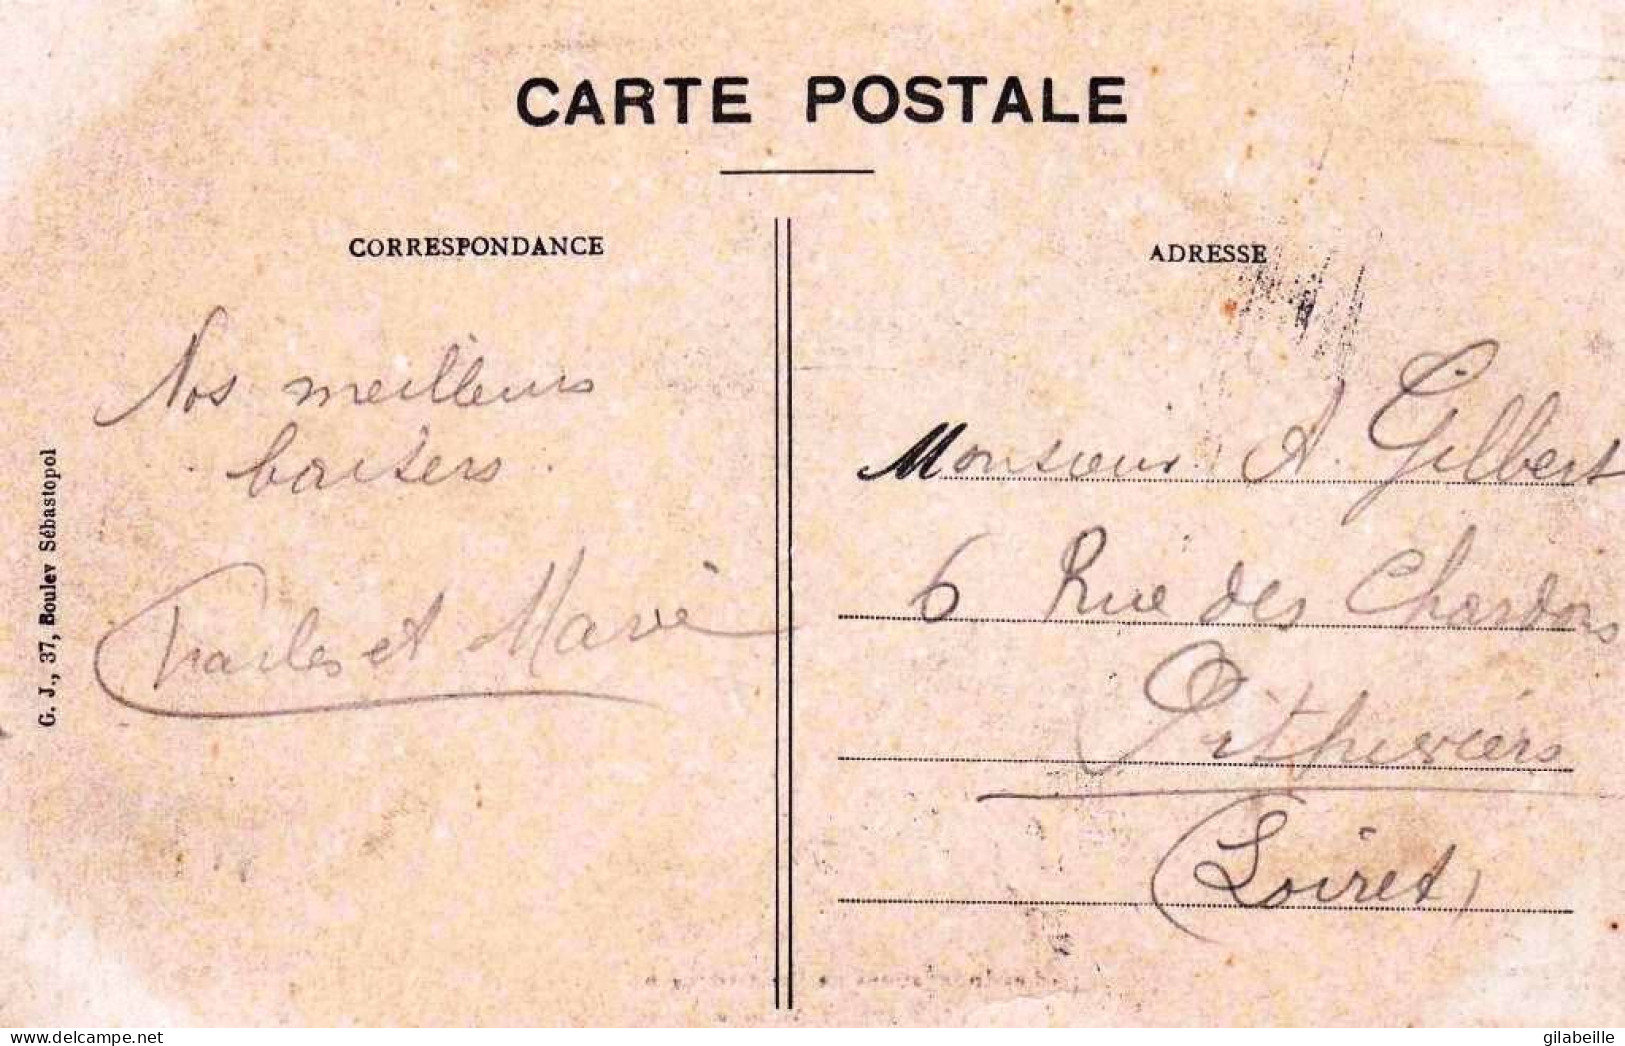 CARTE POSTALE
CORRESPONDANCE
Nos meilleurs
baisers.
Charles et Marie
G. J., 37, Boulev Sébastopol
ADRESSE
Monsieur A. Gilbert
6 Rue des Chardons
Pithiviers
(Loiret)
www.delcampe.net
gilabeille